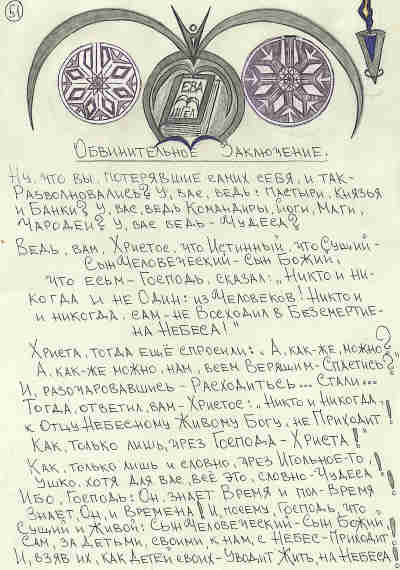 51
ЕВА
НГЕЛ
Обвинительное Заключение.
Ну, что вы, потерявшие самих себя, и так-
Разволновались? У, вас, ведь: Пастыри, Князья
и Банки? У, вас, ведь Командиры, Йоги, Маги,
Чародеи? У, вас ведь - Чудеса?
Ведь, вам, Христос, что Истинный, что Сущий-
Сын Человеческий - Сын Божий,
что есьм - Господь, сказал: „Никто и ни-
когда и не Один: из Человеков! Никто и
и никогда, сам - не Всходил в Безсмертие-
на Небеса!"
Христа, тогда ещё спросили: „А, как-же, можно?
А, как-же можно, нам, всем Верящим - Спастись?"
И, разочаровавшись - Расходитьсь... Стали...
Тогда, ответил, вам - Христос: „Никто и Никогда,
к Отцу Небесному Живому Богу, не Приходит!
Как, только лишь, чрез Господа - Христа!"
Как, только лишь и словно, чрез Игольное-то,
Ушко, хотя для вас, всё это, словно - Чудеса!
Ибо, Господь: Он, знает Время и пол-Время
Знает, Он, и Времена! И, почему, Господь, что
Сущий и Живой: Сын Человеческий - Сын Божий,
Сам, за Детьми, своими, к нам, с Небес - Приходит!
И, взяв их, как Детей своих - Уводит Жить, на Небеса!